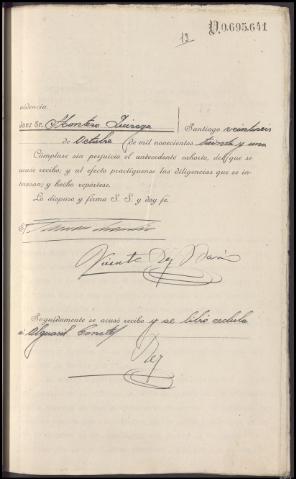 12
P.0.695.641
videncia.
Juez Sr. Montero Quiroga
Santiago veintiseis
de Octubre de mil novecientos treinta y uno
Cumplase sin perjuicio el antecedente exhorto, del que se
acuse recibo, y al efecto practíquense las diligencias que se in-
teresan; y hecho repórtese.
Lo dispuso y firma S. S. y doy fé.
E/
Vicente Rey
Seguidamente se acusó recibo y se libró cédula
á Alguacil
Rey